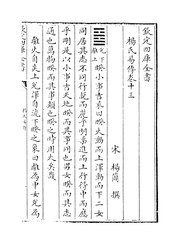 欽定四庫全書
楊氏易傳卷十三
宋 楊簡 撰
兌下離上睽小事吉彖曰睽火動而上澤動而下二女
同居其志不同行說而麗乎明柔進而上行得中而應
乎剛是以小事吉天地睽而其事同也男女睽而其志
通也萬物睽而其事類也睽之時用大矣哉
離火自炎上兌澤自流下睽之象曰離為中女兌為